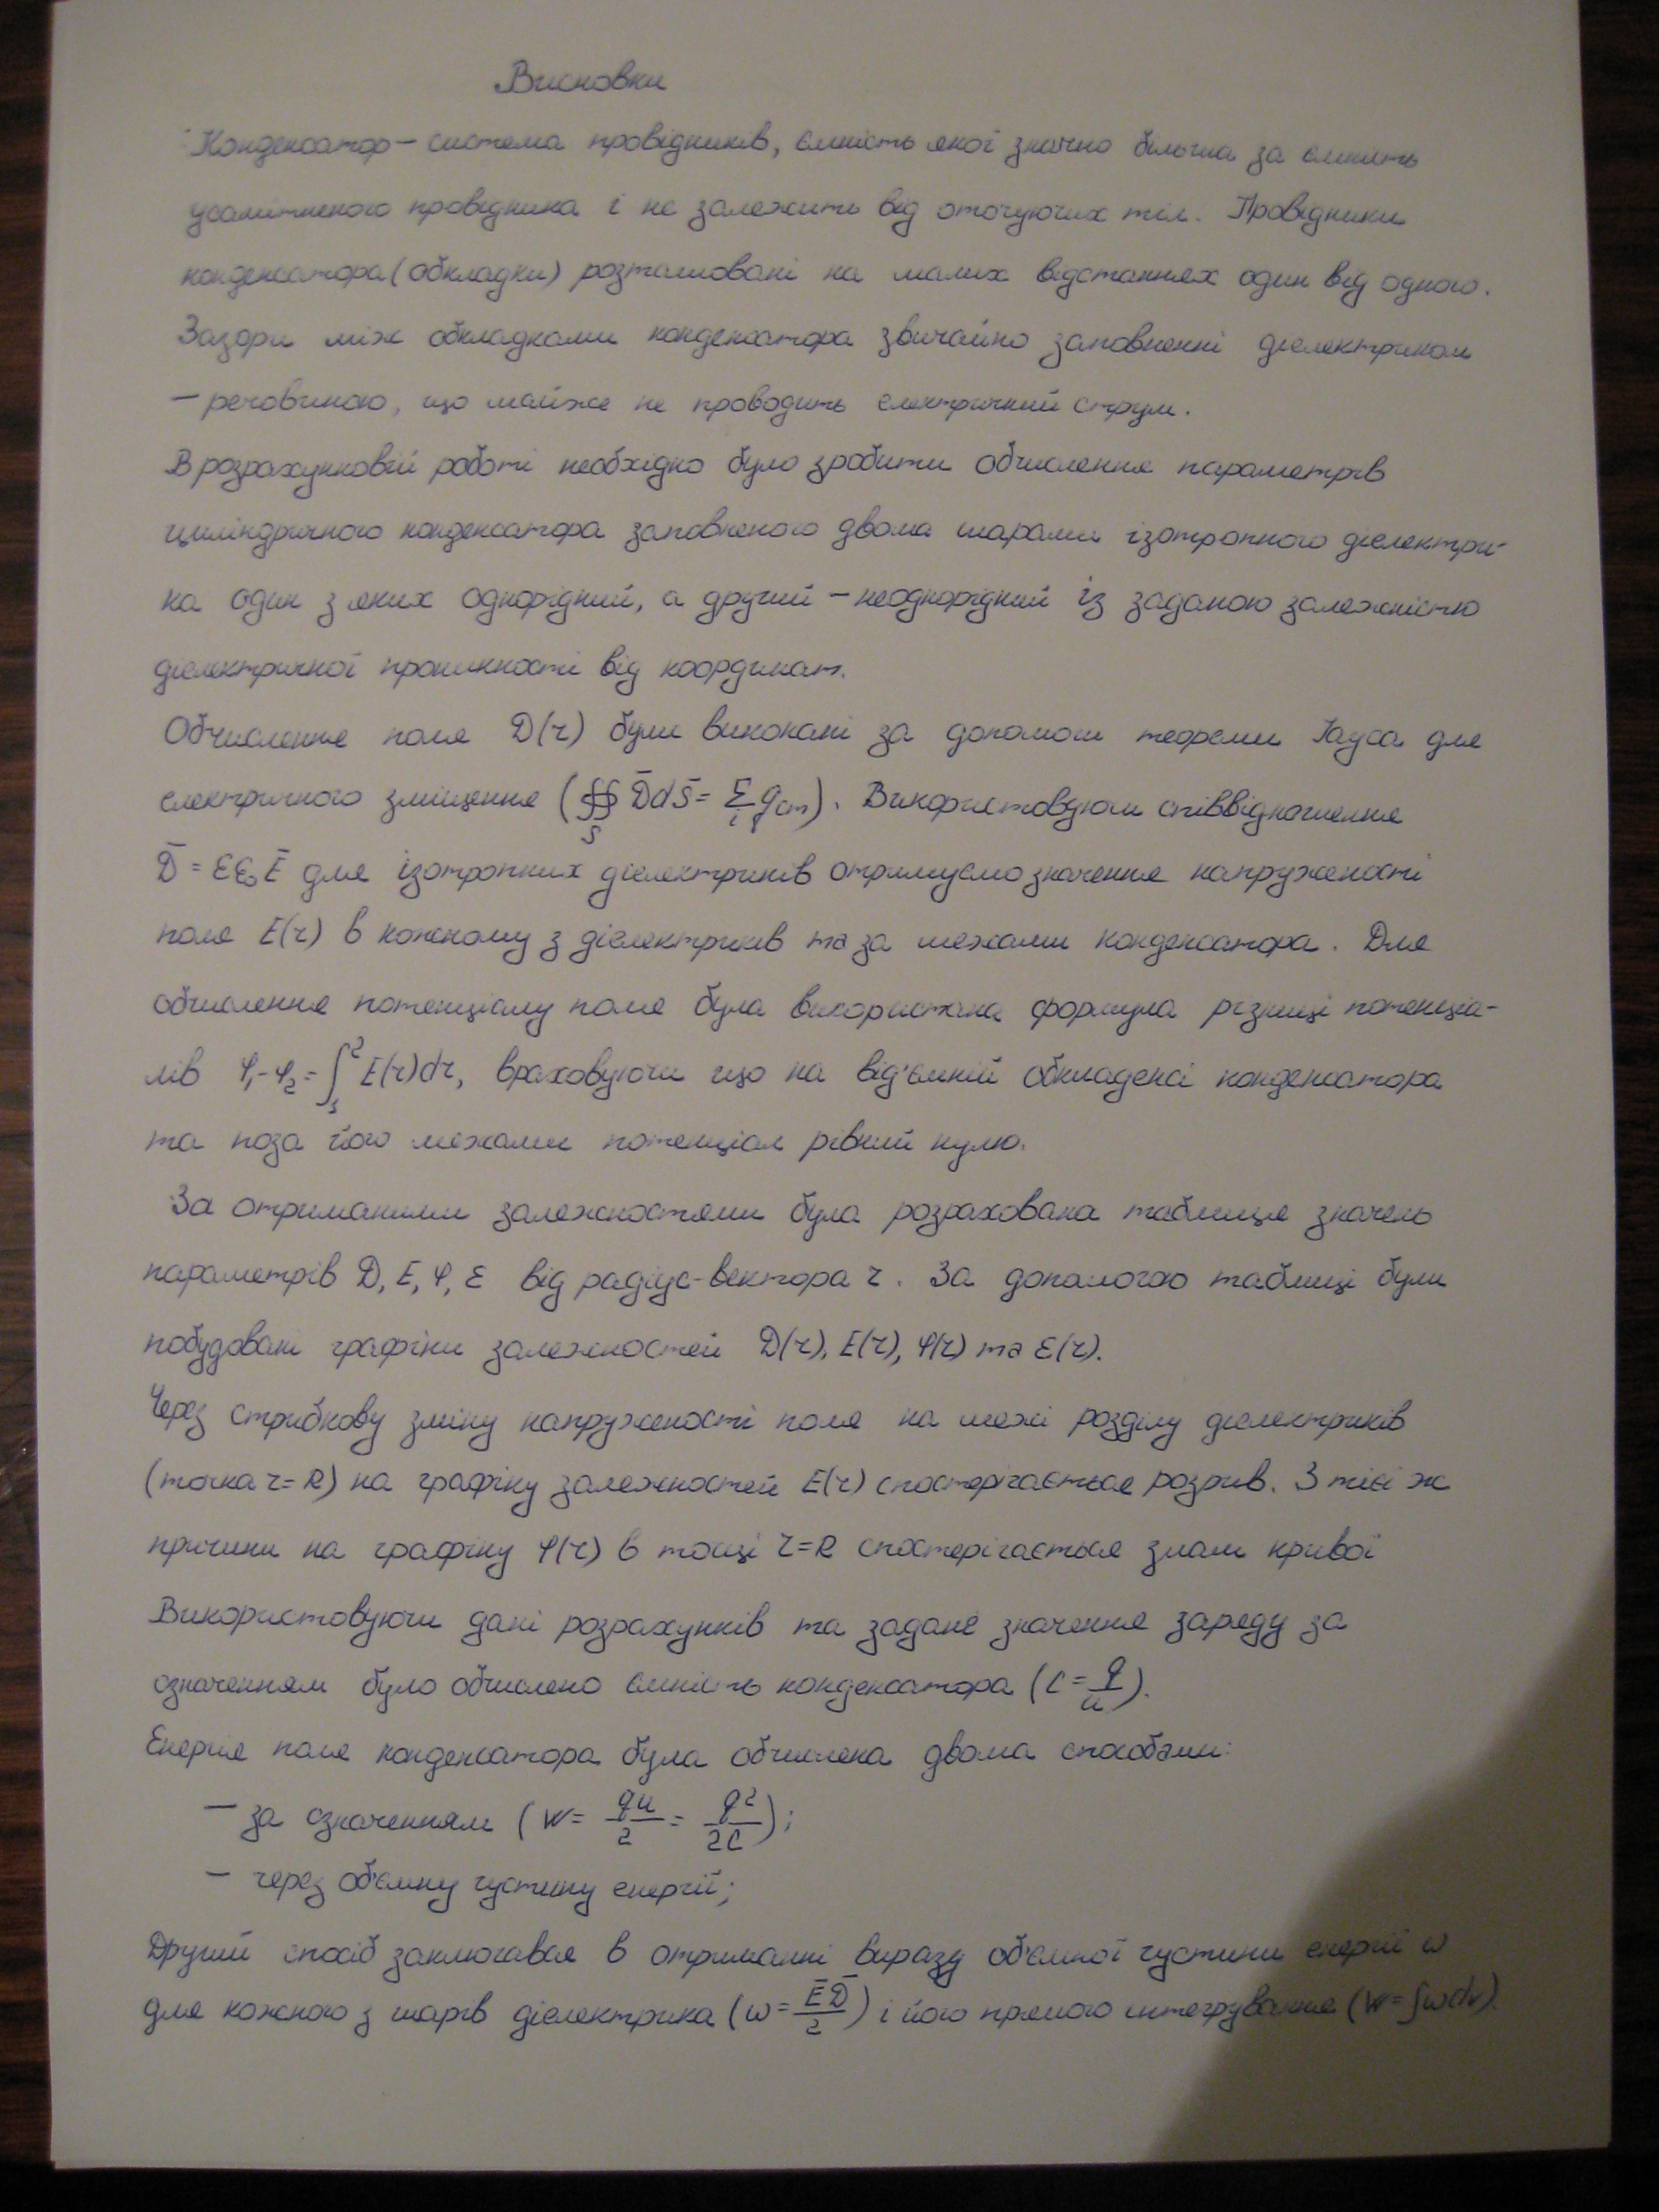 Висновки
Конденсатор – система провідників, ємність якої значно більша за ємність
усамітненого провідника і не залежить від оточуючих тіл. Провідники
конденсатора (обкладки) розташовані на малих відстаннях один від одного.
Зазори між обкладками конденсатора звичайно заповненні діелектриком
– речовиною, що майже не проводить електричний струм.
В розрахунковій роботі необхідно було зробити обчислення параметрів
циліндричного конденсатора заповненого двома шарами ізотропного діелектри-
ка один з яких однорідний, а другий – неоднорідний із заданою залежністю
діелектричної проникності від координат.
Обчислення поля D(r) були виконані за допомоги теореми Гауса для
електричного зміщення (∯_S D̄dS̄ = Σ_i q_ст). Використовуючи співвідношення
D̄ = εε₀Ē для ізотропних діелектриків отримуємо значення напруженості
поля E(r) в кожному з діелектриків та за межами конденсатора. Для
обчислення потенціалу поля була використана формула різниці потенціа-
лів φ₁-φ₂ = ∫₁² E(r)dr, враховуючи що на від'ємній обкладенсі конденсатора
та поза його межами потенціал рівний нулю.
За отриманими залежностями була розрахована таблиця значень
параметрів D, E, φ, ε від радіус-вектора r. За допомогою таблиці були
побудовані графіки залежностей D(r), E(r), φ(r) та ε(r).
Через стрибкову зміну напруженості поля на межі розділу діелектриків
(точка r=R) на графіку залежностей E(r) спостерігається розрив. З тієї ж
причини на графіку φ(r) в точці r=R спостерігається злам кривої
Використовуючи дані розрахунків та задане значення заряду за
означенням було обчислено ємність конденсатора (C = q/u).
Енергія поля конденсатора була обчислена двома способами:
– за означенням (W = qu/2 = q²/2C);
– через об'ємну густину енергії;
Другий спосіб заключався в отриманні виразу об'ємної густини енергії w
для кожного з шарів діелектрика (w = ĒD̄/2) і його прямого інтегрування (W = ∫wdv).